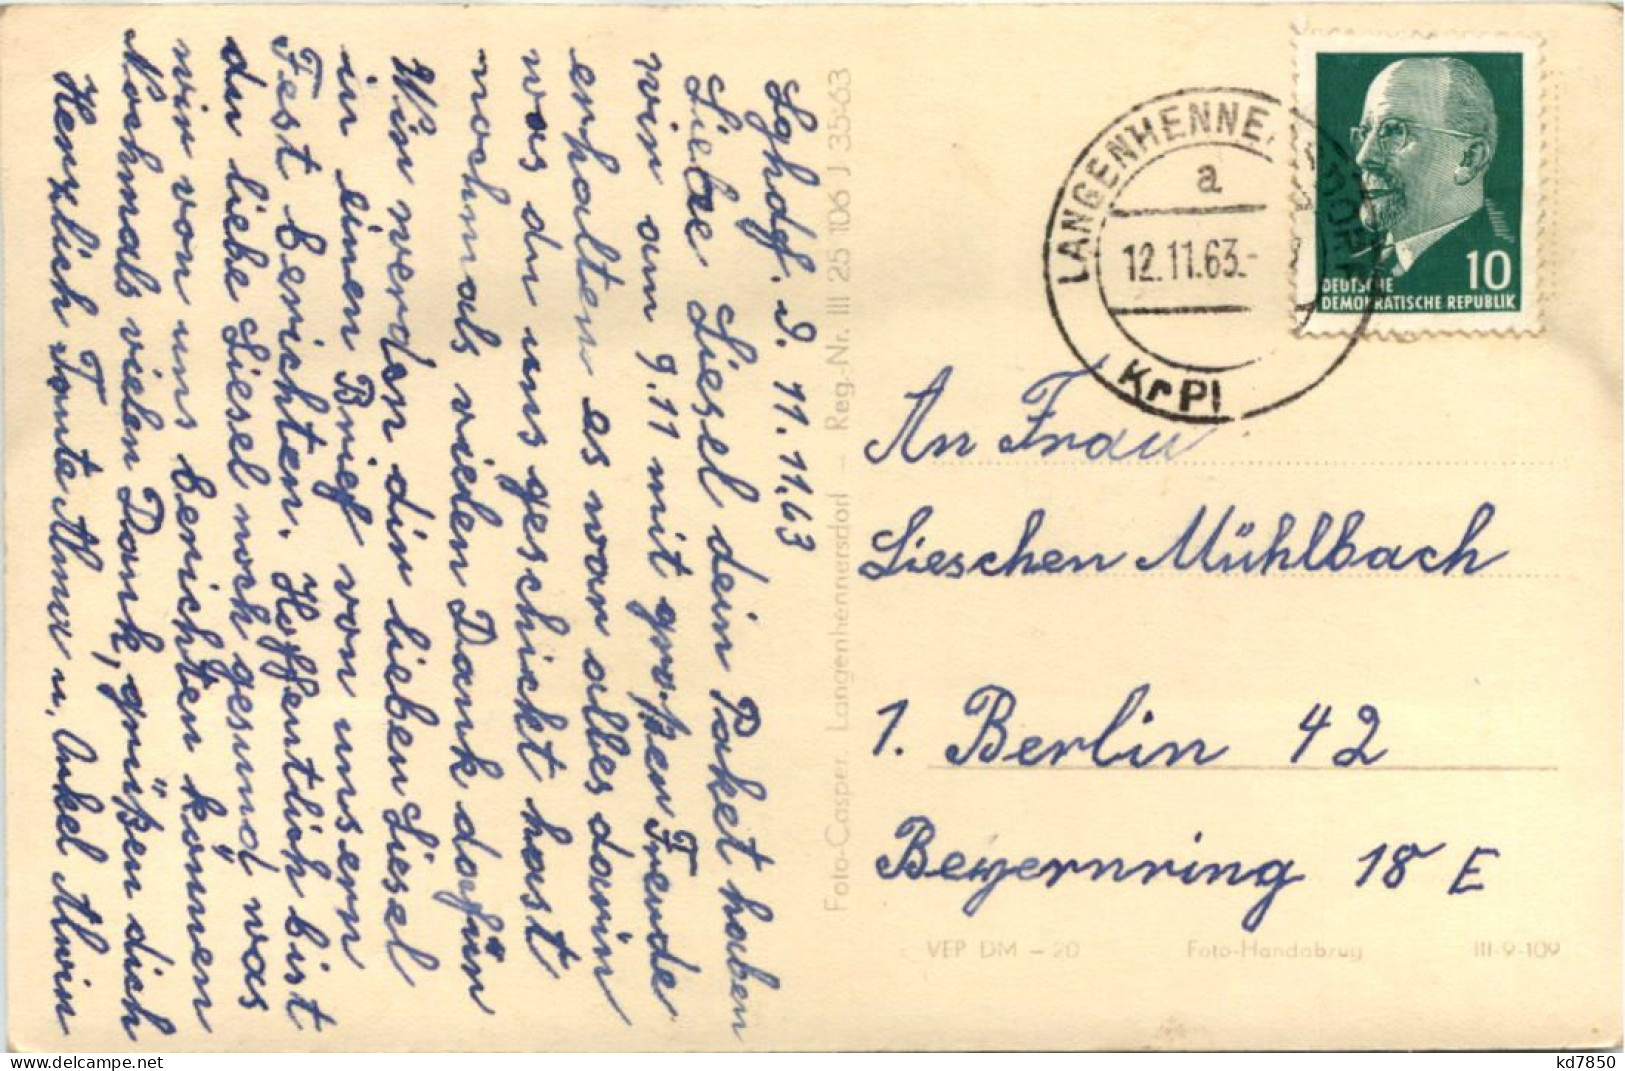 Lghdf. d. 11.11.63
Liebe Liesel dein Paket haben
wir am 9.11 mit großer Freude
erhalten es war alles darin
was du uns geschickt hast
nochmals vielen Dank dafür
Wir werden dir lieben Liesel
in einen Brief von unsern
Fest berichten. Hoffentlich bist
du liebe Liesel noch gesund was
wir von uns berichten können
Nochmals vielen Dank, grüßen dich
Herzlich Tante Alma u. Onkel Alwin
Foto-Casper, Langenhennersdorf – Reg.-Nr. III 25 106 J 35-63
LANGENHENNERSDORF
a
12.11.63.-
Kr Pi
10
DEUTSCHE
DEMOKRATISCHE REPUBLIK
An Frau
Lieschen Mühlbach
1. Berlin 42
Beyernring 18 E
VEP DM – 20 Foto-Handabzug III-9-109
kd7850